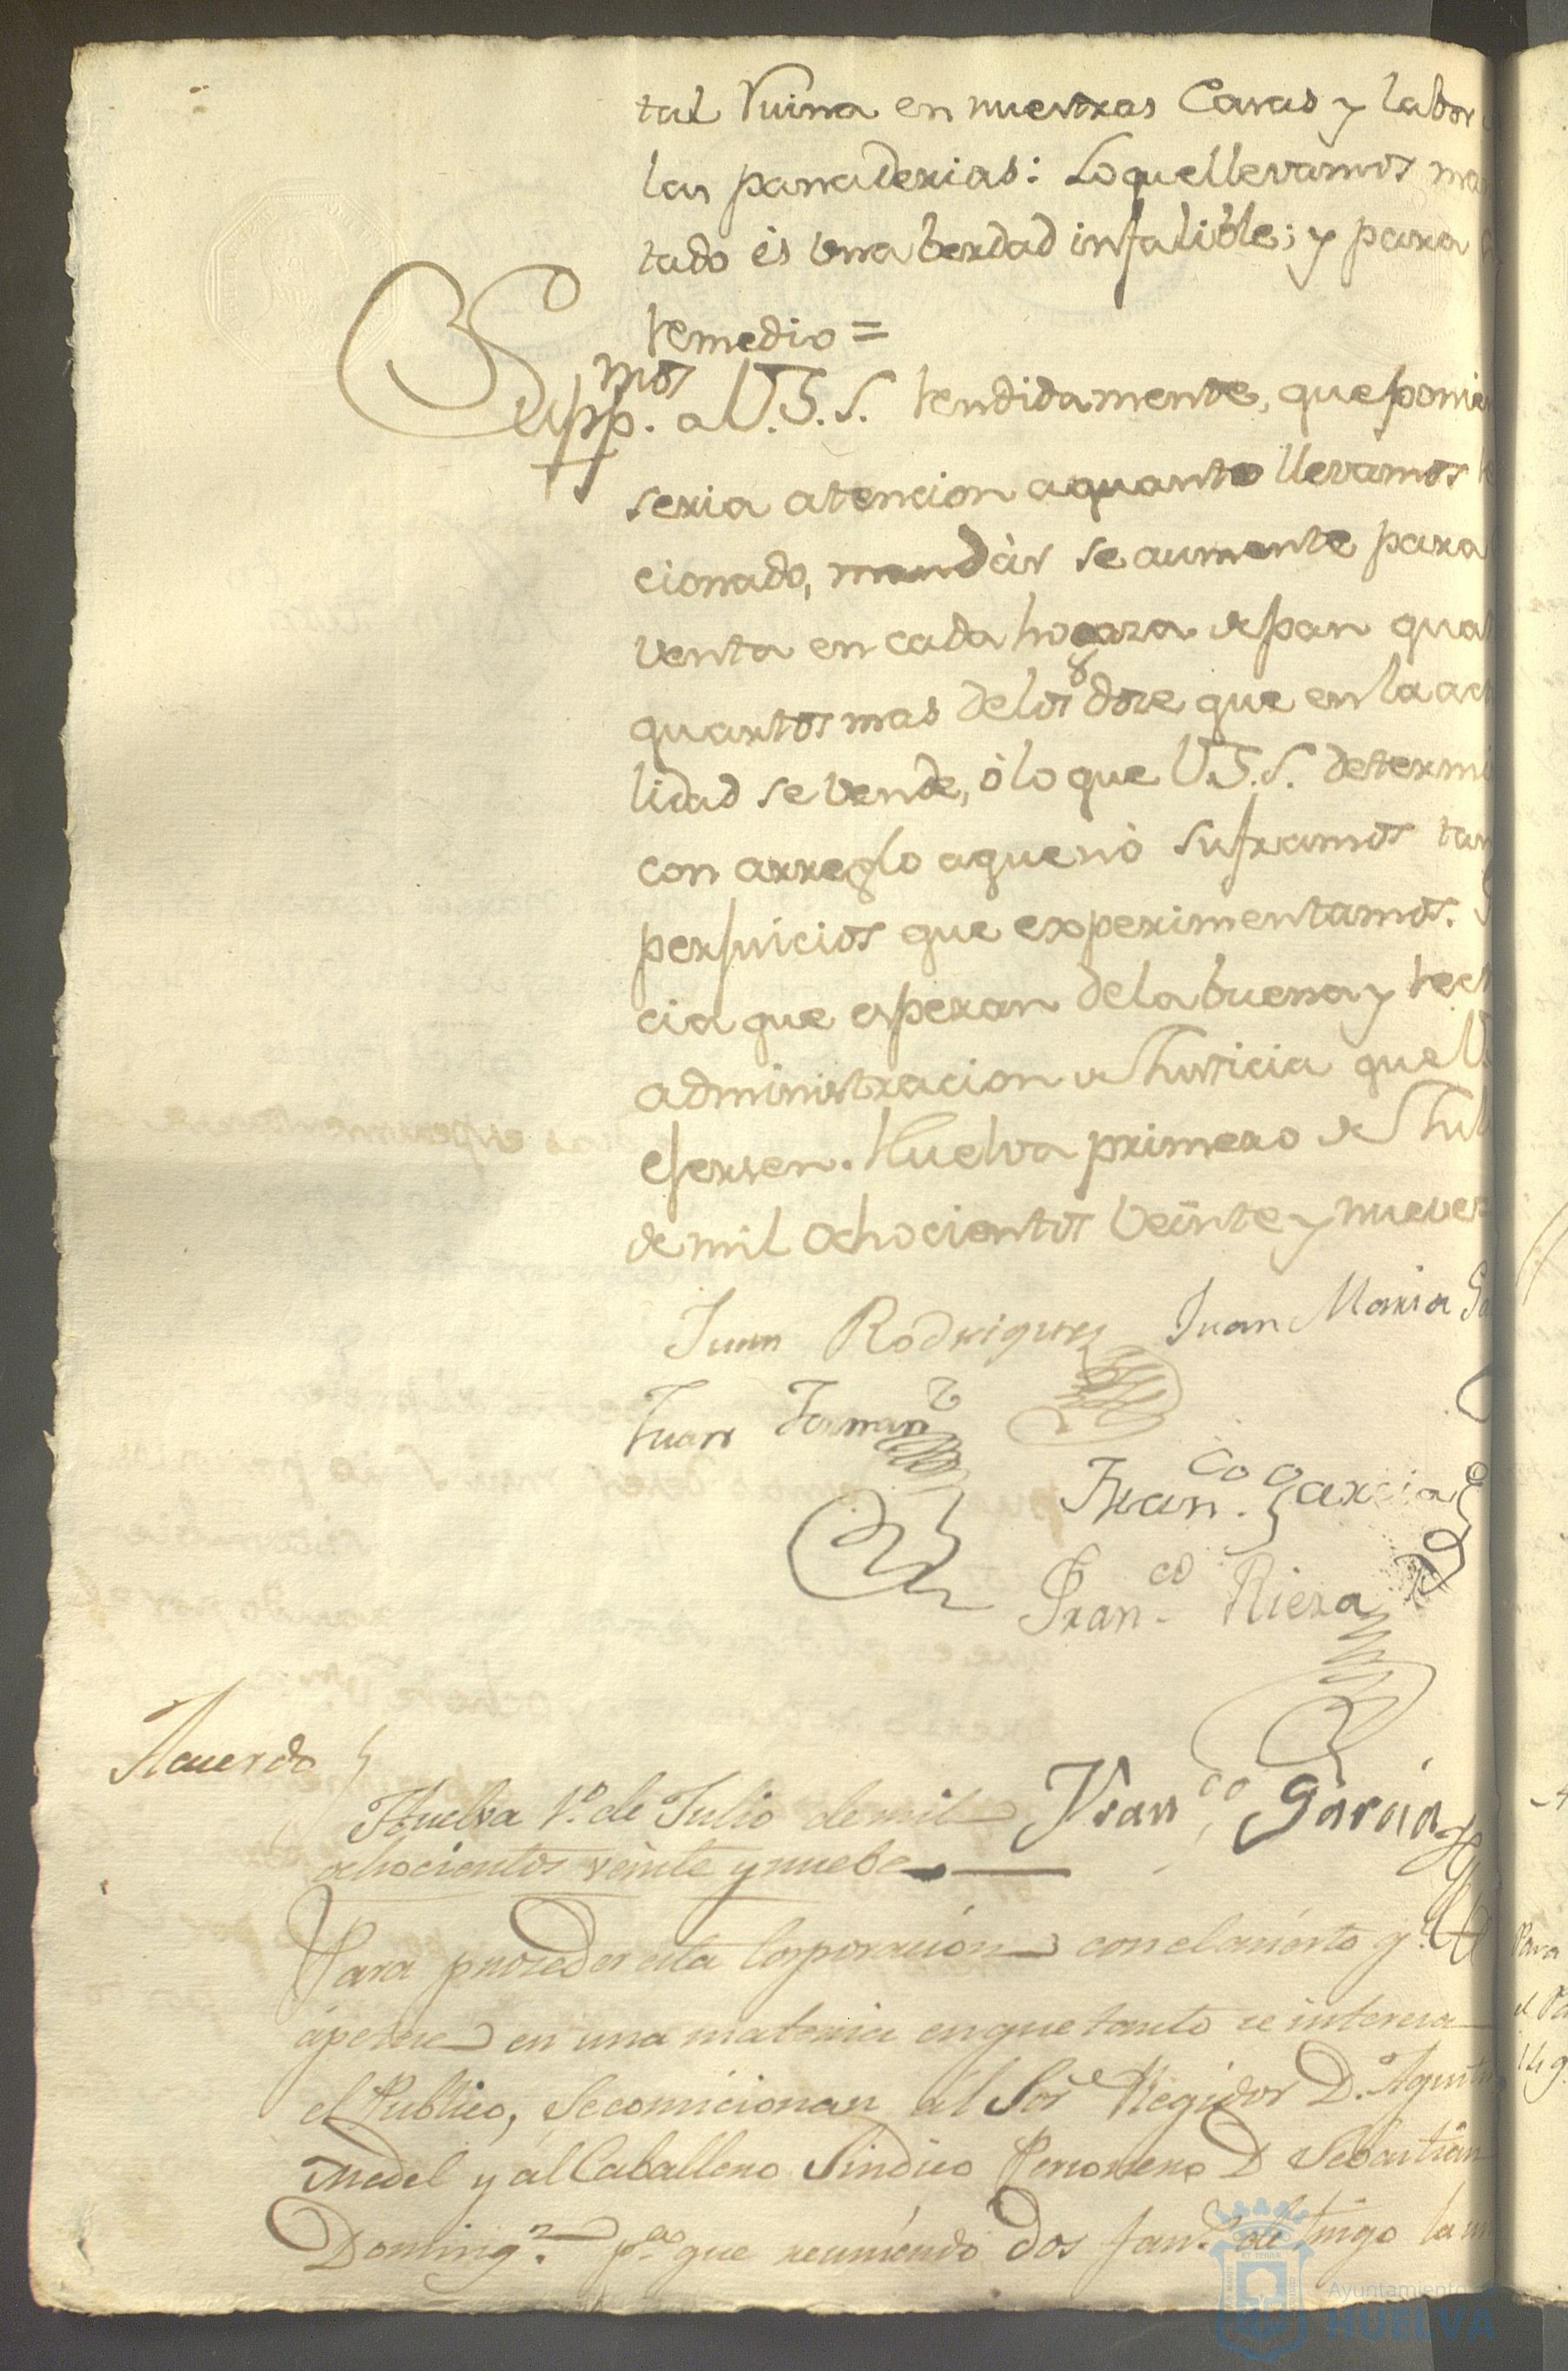 tal Ruina en nuestras Casas y labor
las panaderias: Lo que llevamos ma
tado és una berdad infalible; y para
remedio =
Supp.mos a V.S.S. rendidamente, que ponie
seria atencion a quanto llevamos
cionado, mandár se aumente para
venta en cada hogaza de pan quat
quartos mas de los doze que en la act
lidad se vende, ó lo que V.S.S. determi
con arreglo a que nó suframos tan
perjuicios que experimentamos.
cia que esperan de la buena y rect
administracion de Justicia que V
ejersen. Huelva primero de Jul
de mil ochocientos veinte y nueve
Juan Rodriguez Juan Maria
Juan Fernan.z
Fran.co Garcia
Fran.co Riera
Acuerdo
Fran.co Garcia
Huelva 1.º de Julio de mil
ochocientos veinte y nuebe
Para proceder esta Corporación con el acierto q.e
ápetece en una materia en que tanto se interesa
el Publico, Se comicionan al Sor. Regidor D. Agustin
Medel y al Caballero Sindico Personero D. Sebastian
Doming.z p.a que reuniendo dos fan.s de trigo la un
Para
14 q
Ayuntamiento
HUELVA